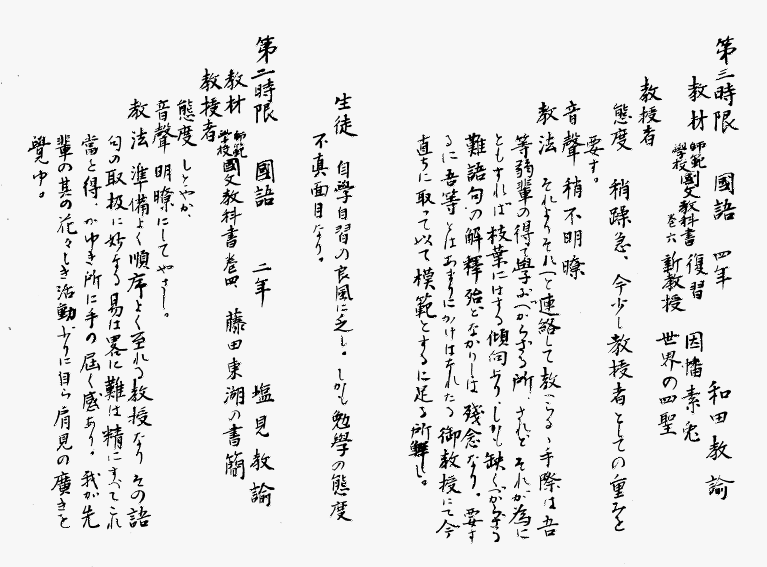 第三時限　國語　四年　和田教諭
教材　師範學校國文教科書卷六　復習　因幡素兎
新教授　世界の四聖
教授者
態度　稍躁急、今少し教授者としての重みを
要す。
音聲　稍不明瞭
教法　それよりそれへと連絡して教へらるゝ手際は吾
等弱輩の得て學ぶべからざる所、されどそれが為に
ともすれば枝葉にはする傾向ありしかも缺くべからざる
難語句の解釋殆どなかりしは殘念なり。要す
るに吾等とはあまりにかけはなれたる御教授にて今
直ちに取って以て模範とするに足る所鮮し。
生徒　自學自習の良風に乏し。しかも勉學の態度
不真面目なり。
第二時限　國語　二年　塩見教諭
教材　師範學校國文教科書卷四　藤田東湖の書簡
教授者
態度　しとやか
音聲　明瞭にしてやさし。
教法　準備よく順序よく至れる教授なりその語
句の取扱に妙なる易は畧に難は精にすべてこれ
當と得、かゆき所に手の屆く感あり。我が先
輩の其の花々しき活動ぶりに自ら肩見の廣きを
覺ゆ。